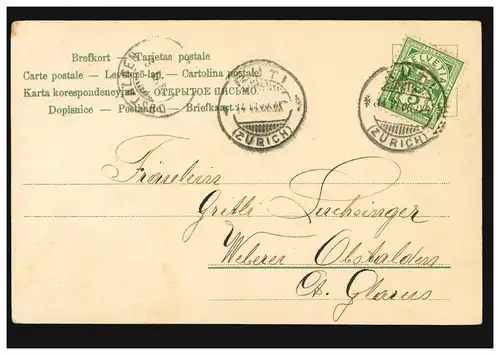 Brefkort — Tarjetas postale
Carte postale — Levelező-lap. — Cartolina postale
Karta korespondencyjna ОТКРЫТОЕ ПИСЬМО.
Dopisnice — Postkarte — Briefkaart
RÜTI
(ZÜRICH)
RÜTI
(ZÜRICH)
HELVETIA
5
Fräulein
Gritli Luchsinger
Weberei Obstalden
Ct. Glarus